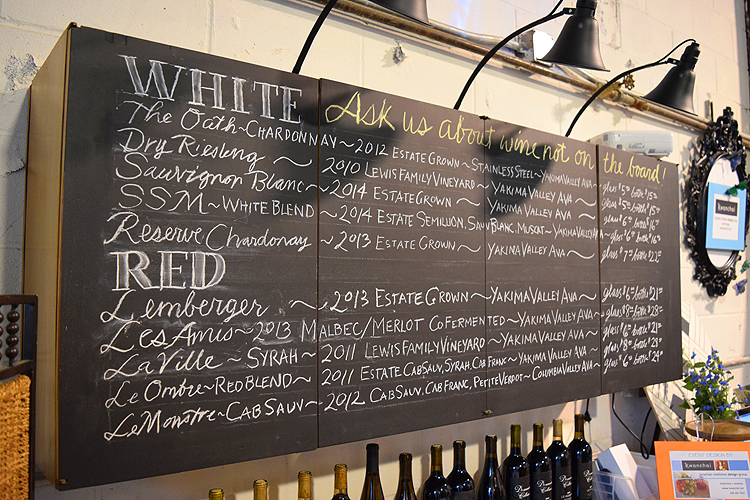 WHITE
Ask us about wine not on the board!
The Oath~CHARDONNAY~2012 ESTATE GROWN~STAINLESS STEEL~YAKIMA VALLEY AVA glass $5 bottle $15
Dry Riesling ~ 2010 LEWIS FAMILY VINEYARD ~ YAKIMA VALLEY AVA glass $5 bottle $15
Sauvignon Blanc ~ 2014 ESTATE GROWN ~ YAKIMA VALLEY AVA glass $6 bottle
SSM~WHITE BLEND ~ 2014 ESTATE SEMILLION, SAUV BLANC, MUSCAT~YAKIMA VALLEY AVA~ glass $6 bottle $16
Reserve Chardonay ~ 2013 ESTATE GROWN ~ YAKIMA VALLEY AVA ~ glass $7 bottle $22
RED
Lemberger ~ 2013 ESTATE GROWN ~YAKIMA VALLEY AVA~ glass $6 bottle $21
Les Amis~2013 MALBEC/MERLOT CO FERMENTED~YAKIMA VALLEY AVA~ glass $8 bottle $28
LaVille~SYRAH~ 2011 LEWIS FAMILY VINEYARD ~ YAKIMA VALLEY AVA~ glass $6 bottle $21
Le Ombre~RED BLEND~ 2011 ESTATE CAB SAUV, SYRAH, CAB FRANC ~YAKIMA VALLEY AVA~ glass $8 bottle $25
Le Monstre~CAB SAUV~ 2012 CAB SAUV, CAB FRANC, PETITE VERDOT~COLUMBIA VALLEY AVA~ glass $6 bottle $24
kwanchai
EVENT DESIGN BY
kwanchai